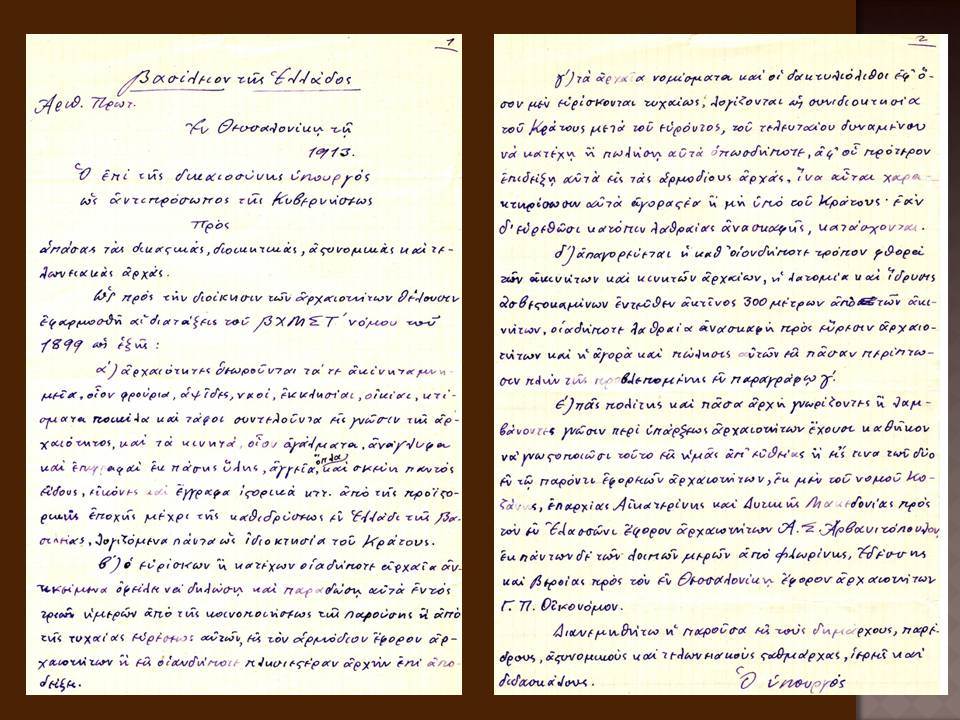 1
Βασίλειον τῆς Ἑλλάδος
Ἀριθ. Πρωτ.
Ἐν Θεσσαλονίκῃ τῇ
1913.
Ὁ ἐπὶ τῆς δικαιοσύνης ὑπουργός
ὡς ἀντιπρόσωπος τῆς Κυβερνήσεως
Πρὸς
ἁπάσας τὰς δικαστικάς, διοικητικάς, ἀστυνομικὰς καὶ τε-
λωνειακὰς ἀρχάς.
Ὡς πρὸς τὴν διοίκησιν τῶν ἀρχαιοτήτων θέλουσιν
ἐφαρμοσθῆ αἱ διατάξεις τοῦ ΒΧΜΣΤ΄ νόμου τοῦ
1899 ὡς ἑξῆς:
α΄) ἀρχαιότητες θεωροῦνται τά τε ἀκίνητα μνη-
μεῖα, οἷον φρούρια, ἁψῖδες, ναοί, ἐκκλησίαι, οἰκίαι, κτί-
σματα ποικίλα καὶ τάφοι συντελοῦντα εἰς γνῶσιν τῆς ἀρ-
χαιότητος, καὶ τὰ κινητά, οἷον ἀγάλματα, ἀνάγλυφα
καὶ ἐπιγραφαὶ ἐκ πάσης ὕλης, ἀγγεῖα, ὅπλα καὶ σκεύη παντὸς
εἴδους, εἰκόνες καὶ ἔγγραφα ἱστορικὰ κττ. ἀπὸ τῆς προϊστο-
ρικῆς ἐποχῆς μέχρι τῆς καθιδρύσεως ἐν Ἑλλάδι τῆς Βα-
σιλείας, λογιζόμενα πάντα ὡς ἰδιοκτησία τοῦ Κράτους.
β΄) ὁ εὑρίσκων ἢ κατέχων οἱαδήποτε ἀρχαῖα ἀν-
τικείμενα ὀφείλει νὰ δηλώσῃ καὶ παραδώσῃ αὐτὰ ἐντὸς
τριῶν ἡμερῶν ἀπὸ τῆς κοινοποιήσεως τῆς παρούσης ἢ ἀπὸ
τῆς τυχαίας εὑρέσεως αὐτῶν, εἰς τὸν ἁρμόδιον ἔφορον ἀρ-
χαιοτήτων ἢ εἰς οἱανδήποτε πλησιεστέραν ἀρχὴν ἐπὶ ἀπο-
δείξει.
2
γ΄) τὰ ἀρχαῖα νομίσματα καὶ οἱ δακτυλιόλιθοι ἐφ᾽ ὅ-
σον μὲν εὑρίσκονται τυχαίως, λογίζονται ὡς συνιδιοκτησία
τοῦ Κράτους μετὰ τοῦ εὑρόντος, τοῦ τελευταίου δυναμένου
νὰ κατέχῃ ἢ πωλήσῃ αὐτὰ ὁπωσδήποτε, ἀφ᾽ οὗ πρότερον
ἐπιδείξῃ αὐτὰ εἰς τὰς ἁρμοδίους ἀρχάς, ἵνα αὗται χαρα-
κτηρίσωσιν αὐτὰ ἀγοραστέα ἢ μὴ ὑπὸ τοῦ Κράτους· ἐὰν
δ᾽ εὑρεθῶσι κατόπιν λαθραίας ἀνασκαφῆς, κατάσχονται.
δ΄) ἀπαγορεύεται ἡ καθ᾽ οἱονδήποτε τρόπον φθορὰ
τῶν ἀκινήτων καὶ κινητῶν ἀρχαίων, ἡ λατομία καὶ ἵδρυσις
ἀσβεστοκαμίνων ἐντεῦθεν ἀκτῖνος 300 μέτρων ἀπὸ τῶν ἀκι-
νήτων, οἱαδήποτε λαθραία ἀνασκαφὴ πρὸς εὕρεσιν ἀρχαιο-
τήτων καὶ ἡ ἀγορὰ καὶ πώλησις αὐτῶν εἰς πᾶσαν περίπτω-
σιν πλὴν τῆς προβλεπομένης ἐν παραγράφῳ γ΄.
ε΄) πᾶς πολίτης καὶ πᾶσα ἀρχὴ γνωρίζοντες ἢ λαμ-
βάνοντες γνῶσιν περὶ ὑπάρξεως ἀρχαιοτήτων ἔχουσι καθῆκον
νὰ γνωστοποιῶσι τοῦτο εἰς ἡμᾶς ἀπ᾽ εὐθείας ἢ εἴς τινα τῶν δύο
ἐν τῷ παρόντι ἐφορειῶν ἀρχαιοτήτων, ἐκ μὲν τοῦ νομοῦ Κο-
ζάνης, ἐπαρχίας Αἰκατερίνης καὶ Δυτικῆς Μακεδονίας πρὸς
τὸν ἐν Ἐλασσῶνι ἔφορον ἀρχαιοτήτων Α. Σ. Ἀρβανιτόπουλον,
ἐκ πάντων δὲ τῶν λοιπῶν μερῶν ἀπὸ Φλωρίνης, Ἐδέσσης
καὶ Βεροίας πρὸς τὸν ἐν Θεσσαλονίκῃ ἔφορον ἀρχαιοτήτων
Γ. Π. Οἰκονόμον.
Διανεμηθήτω ἡ παροῦσα εἰς τοὺς δημάρχους, παρέ-
δρους, ἀστυνομικοὺς καὶ τελωνιακοὺς σταθμάρχας, ἱερεῖς καὶ
διδασκάλους.
Ὁ ὑπουργός